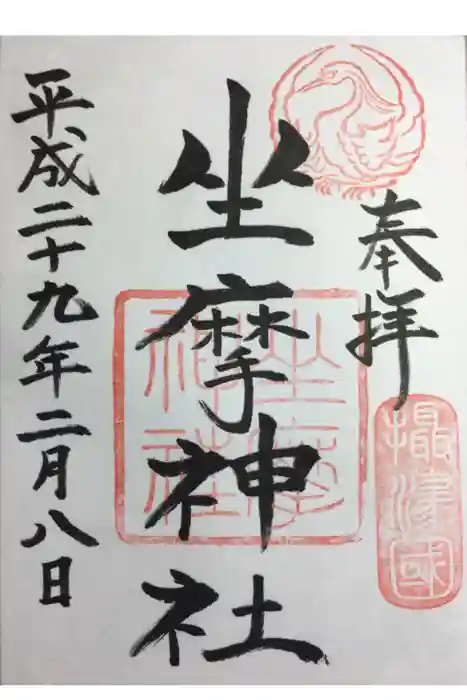 奉拝
摂津國
坐摩神社
坐摩神社
平成二十九年二月八日